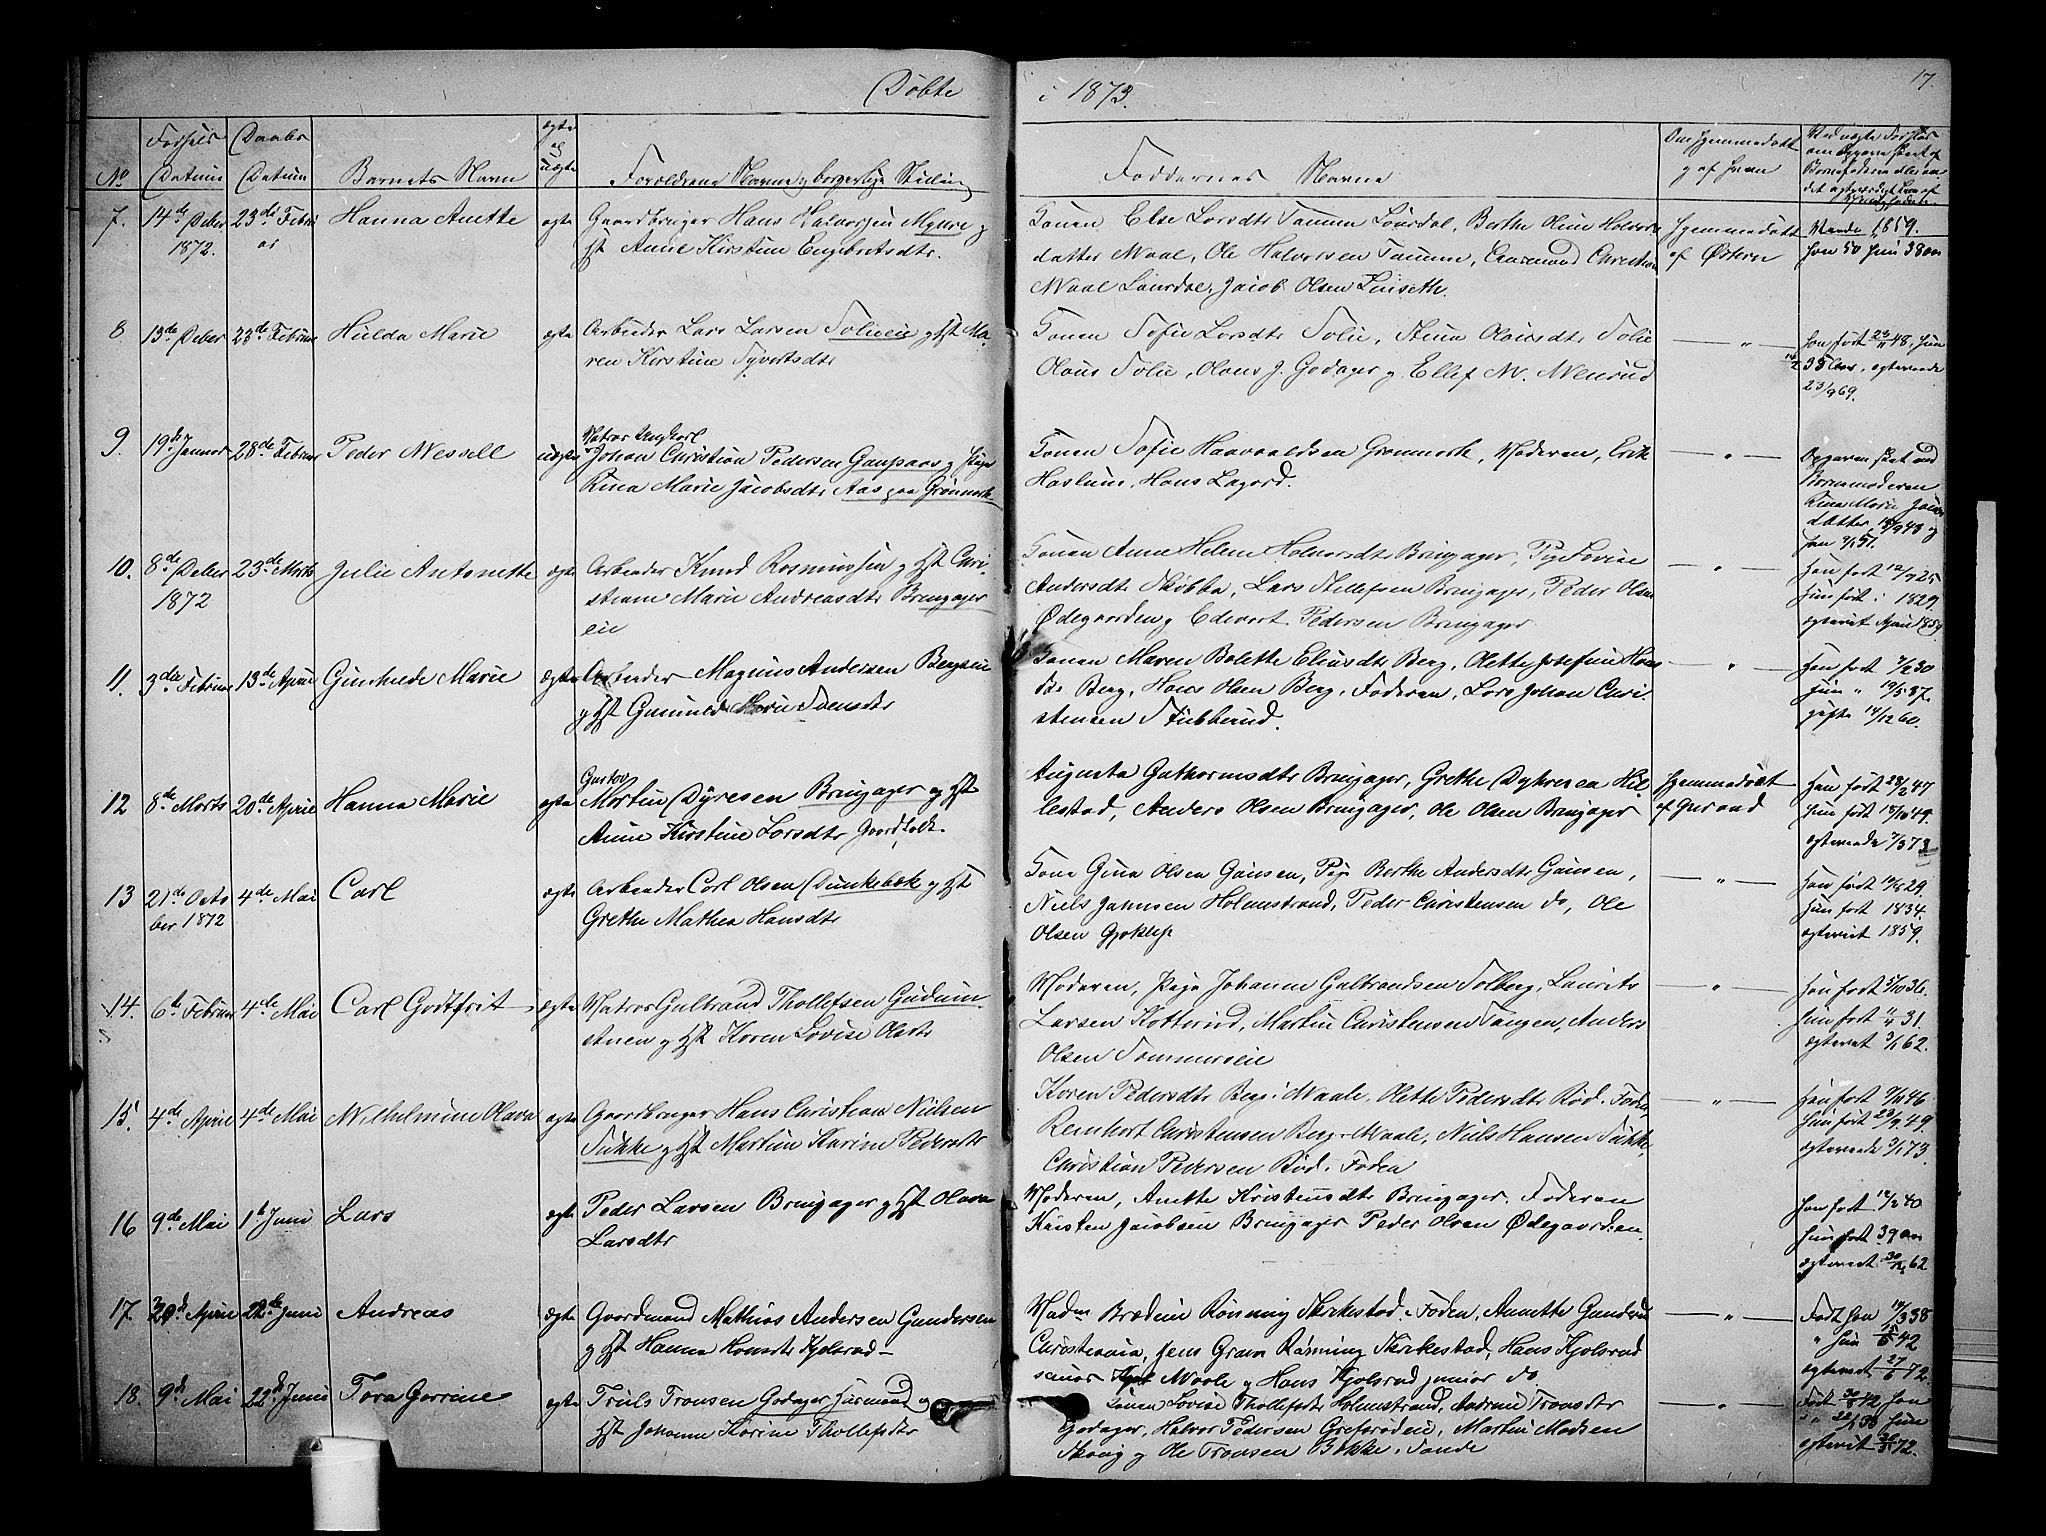 Døbte
i 1873.
17.
No
Fødsels Datum
Daabs Datum
Barnets Navn
ægte og uægte
Forældrenes Navne og borgerlige Stilling
Faddernes Navne
Om hjemmedøbt og af hvem
7. 14de Dcbr 1872. 23de Februar Hanna Anette ægte Gaardbruger Hans Halvorsen Myhre og
Hst Anne Kirstine Engebretsdtr.
Konen Else Larsdtr Lourdal, Berthe Oline Halvors
datter Waal, Ole Halvorsen Christian
Waal Lourdal, Jacob Olsen Linseth.
Hjemmedøbt af Østern
1859.
han 50 hun 38 aar
8 13de Dcbr 23de Februar Hulda Marie ægte Arbeider Lars Larsen Solieie og Hst Ma-
ren Kirstine Syvertsdtr
Konen Sofie Larsdtr Solie, Stina Olausdtr Solie
Olaus Solie, Hans J. Godager og Ellef M. Wenrud
— " —
han født 48. hun
ægteviede
23/9 69.
9. 19de Januar 28de Februar Peder Wessell uægte Matros Ungkarl
Johan Christian Pedersen og Pige
Rina Marie Jacobsdtr Aas paa Grønmark
Konen Sofie Haavaldsen Grønmark, Moderen, Erik
Haslum, Hans Lagord.
— " —
Opgaven skeet ved
Barnemoderen
Rina Marie Jacobs
datter
10. 8de Dcbr 1872 23de Marts Julie Antonette ægte Arbeider Knud Rasmussen og Hst Chri-
stiane Marie Andreasdtr Bringager
eie
Konen Anne Helene Halvorsdtr Bringager, Pige Lovise
Andersdtr Skibba, Lars Bringager, Peder Olsen
Ødegaarden og Edvart Pedersen Bringager
— " —
Han født 25
Hun født i 1829
ægteviet April 1859
11. 3die Februar 13de April Gunhilde Marie ægte Arbeider Magnus Andersen Bergseie
og Hst Gunnild Marie
Konen Maren Bolette Eliasdtr Berg, Olette Josefine Hans
dtr Berg, Hans Olsen Berg, Faderen, Lars Johan Chri-
stensen Stubberud.
"
Han født 30
Hun " 19/5 37.
gifte 14/12 60.
12 8de Marts 20de April Hanna Marie ægte Gustav
Martin Dyresen Bringager og Hst
Anne Kirstine Larsdtr Gaardfolk.
Augusta Guthormsdtr Bringager, Grethe Dyhresen Hil-
lestad, Anders Olsen Bringager, Ole Olsen Bringager
Hjemmedøbt af Guraand
Han født 28/2 47
Hun født 18/10 49.
ægteviede 7/3 73
13 21de October 1872 4de Mai Carl ægte Arbeider Carl Olsen Dunkebæk og Hst
Grethe Mathea Hansdtr
Kone Gina Olsen Gausen, Pige Berthe Andersdtr Gausen,
Niels Jansen Holmestrand, Peder Christensen do, Ole
Olsen Gjøklep
— " —
Han født 29.
Hun født 1834.
ægteviet 1859.
14. 6te Februar 4de Mai Carl Godtfrit ægte Matros Gulbrand Thollefsen Gudum-
stuen og Hst Karen Lovise Olsdtr
Moderen, Pige Johanne Gulbrandsen Solberg, Laurits
Larsen Kotterud, Martin Christensen Tangen, Anders
Olsen Sommerseie
— " —
Han født 5/10 36.
Hun født 31.
ægteviet 3/1 62.
15. 4de April 4de Mai Wilhelmine Olava ægte Gaardbruger Hans Christian Nielsen
Sukke og Hst Martine Karine Pedersdtr
Karen Pedersdtr Berg i Waale, Olette Pedersdtr Rød. Faderen
Reinhart Christensen Berg-Waale, Niels Hansen Sukke
Christian Pedersen Rød. Faderen
— " —
Han født 46
Hun født 49
ægteviede 3/1 73.
16 9de Mai 1te Juni Lars ægte Peder Larsen Bringager og Hst Olava
Larsdtr
Moderen, Anette Kristensdtr Bringager. Faderen
Karsten Jacobsen Bringager Peder Olsen Ødegaarden.
Han født 12/2 40
Hun født 39 aar
ægteviet 62
17. 30de April 22de Juni Andreas ægte Gaardmand Mathias Andersen Gundersen
og Hst Hanna Hansdtr Kjolsrød
Madm Rønning Skirkestad. Faderen, Annette Gundersen
Christiania, Jens Gram Rønning Skirkestad, Hans Kjolsrød
senior Waale og Hans Kjolsrød junior do.
— " —
Født han 38
" hun 42
ægteviet 27/6 72.
18. 9de Mai 22de Juni Tora Gorrine ægte Truls Tronsen Godager Huusmand og
Hst Johanne Karine Thollefsdtr
Konen Lovise Thollefsdtr Holmestrand, Andrine Tronsdtr
Godager, Halvor Pedersen Grefsrødeie, Martin Madsen
Skoug og Ole Tronsen Bakke i Sande
— " —
Født 42 han
" 38 hun
ægteviet 72.